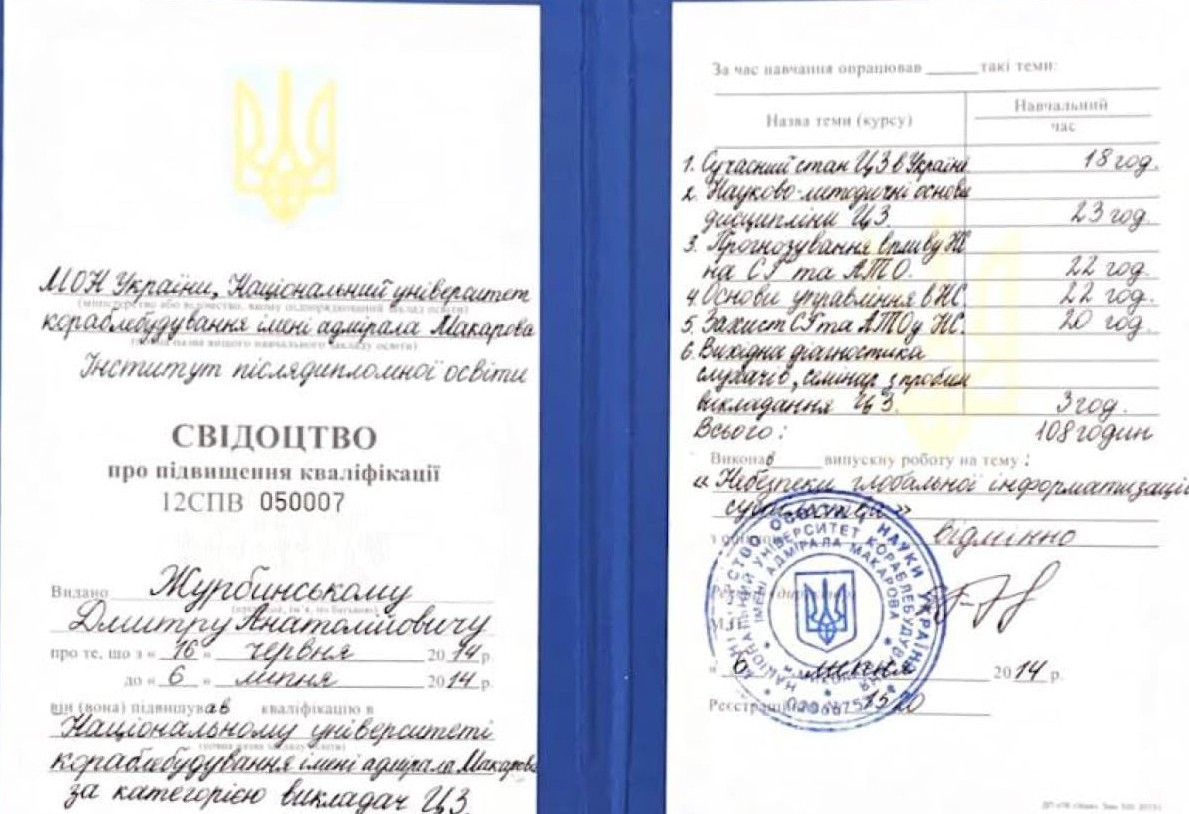 МОН України, Національний університет
(міністерство або відомство, якому підпорядкований заклад освіти)
кораблебудування імені адмірала Макарова
(повна назва вищого навчального закладу освіти)
Інститут післядипломної освіти
СВІДОЦТВО
про підвищення кваліфікації
12СПВ 050007
Видано Журбинському
(прізвище, ім'я, по батькові)
Дмитру Анатолійовичу
про те, що з « 16 » червня 2014 р.
до « 6 » липня 2014 р.
він (вона) підвищував кваліфікацію в
Національному університеті
кораблебудування імені адмірала Макарова
за категорією викладач ЦЗ
За час навчання опрацював такі теми:
Назва теми (курсу)
Навчальний
час
1. Сучасний стан ЦЗ в Україні 18 год.
2. Науково-методичні основи
дисципліни ЦЗ. 23 год.
3. Прогнозування впливу НС
на СГ та АТО. 22 год.
4. Основи управління в НС. 22 год.
5. Захист СГ та АТО у НС. 20 год.
6. Вихідна діагностика
слухачів, семінар з проблем
викладання ЦЗ. 3 год.
Всього: 108 годин
Виконав випускну роботу на тему:
« Небезпеки глобальної інформатизації
суспільства »
з оцінкою відмінно
М.П.
« 6 » липня 2014 р.
Реєстраційний № 1520
МІНІСТЕРСТВО ОСВІТИ І НАУКИ УКРАЇНИ
НАЦІОНАЛЬНИЙ УНІВЕРСИТЕТ КОРАБЛЕБУДУВАННЯ
ІМЕНІ АДМІРАЛА МАКАРОВА